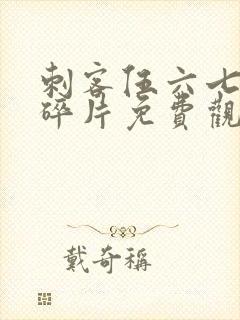 刺客伍六七
碎片免費觀
戴奇稱